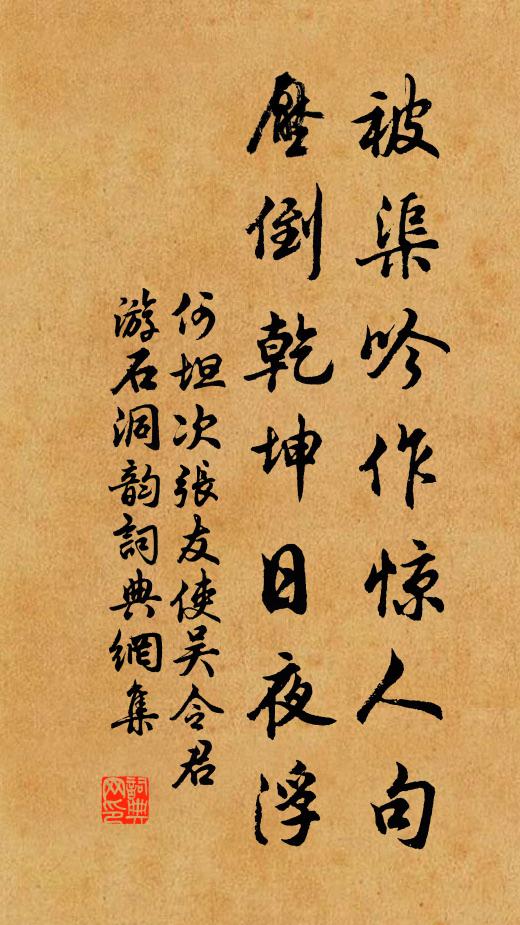 被渠吟作惊人句
壓倒乾坤日夜浮
何坦次張友使吴令君
游石洞韵詞典網集
詞典网印